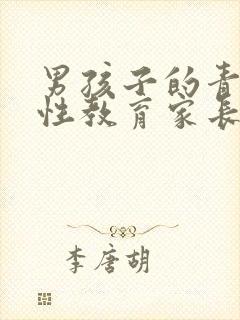 男孩子的青
性教育家长
李唐胡